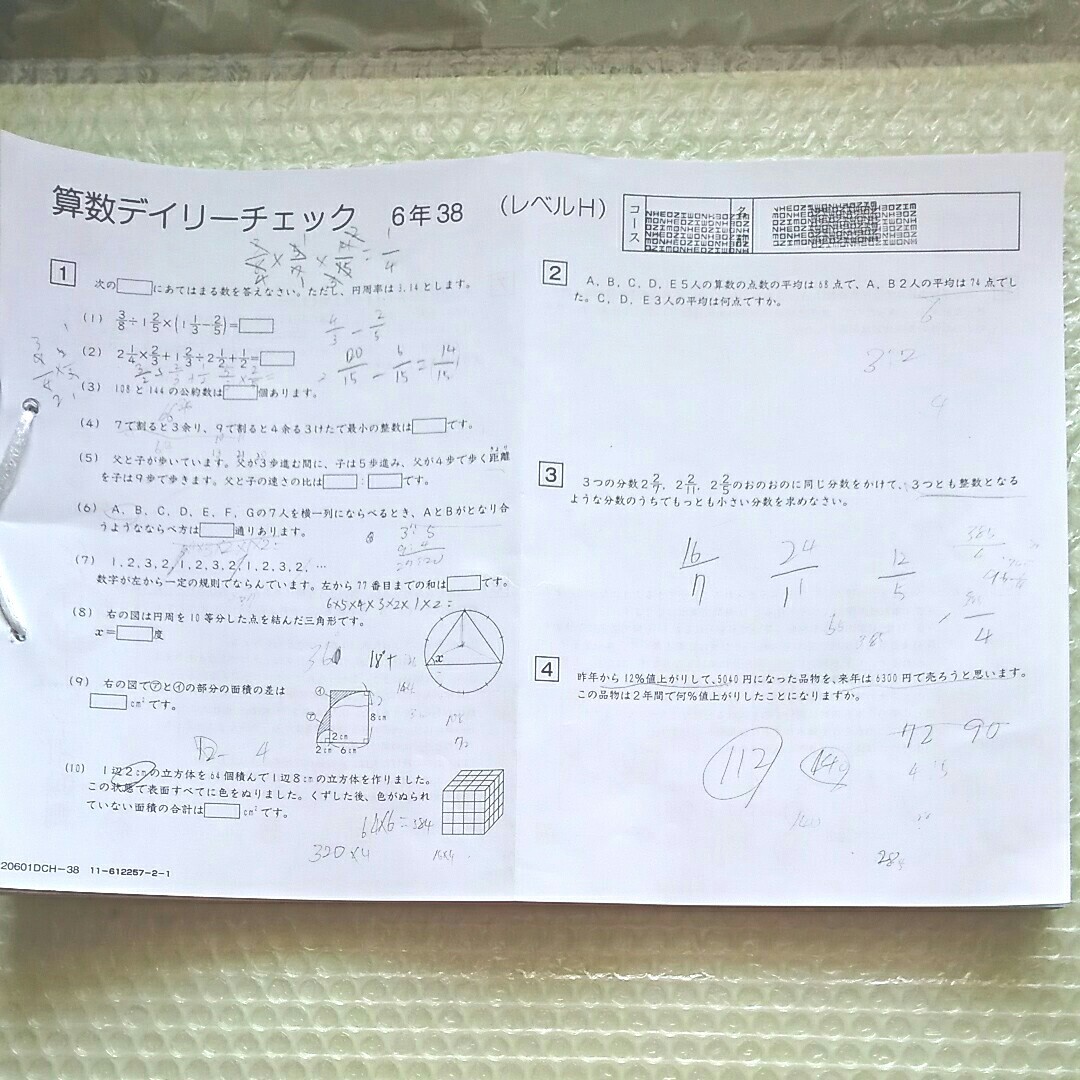 算数デイリーチェック 6年38 (レベルH)
コース
名
1
次の□にあてはまる数を答えなさい。ただし、円周率は3.14とします。
(1) 3/8÷1 2/5×(1 1/3−2/5)=□
(2) 2 1/4×2/3+1 2/3÷2 1/2+1/2=□
(3) 108と144の公約数は□個あります。
(4) 7で割ると3余り、9で割ると4余る3けたで最小の整数は□です。
(5) 父と子が歩いています。父が3歩進む間に、子は5歩進み、父が4歩で歩く距離
を子は9歩で歩きます。父と子の速さの比は□:□です。
(6) A、B、C、D、E、F、Gの7人を横一列にならべるとき、AとBがとなり合
うようなならべ方は□通りあります。
(7) 1、2、3、2、1、2、3、2、1、2、3、2、…
数字が左から一定の規則でならんでいます。左から77番目までの和は□です。
6×5×4×3×2×1×2=
(8) 右の図は円周を10等分した点を結んだ三角形です。
x=□度
x
360
18+
(9) 右の図で㋐と㋑の部分の面積の差は
□cm²です。
㋑
㋐
8cm
2cm
2cm 6cm
12 4
(10) 1辺2cmの立方体を64個積んで1辺8cmの立方体を作りました。
この状態で表面すべてに色をぬりました。くずした後、色がぬられ
ていない面積の合計は□cm²です。
64×6=384
320×4
20601DCH−38 11−612257−2−1
4/3 − 2/5
20/15 − 6/15 = 14/15
3:5
9:4
27:20
2
A、B、C、D、E5人の算数の点数の平均は68点で、A、B2人の平均は74点でし
た。C、D、E3人の平均は何点ですか。
6
3:2
4
3
3つの分数2 2/7、2 2/11、2 2/5のおのおのに同じ分数をかけて、3つとも整数となる
ような分数のうちでもっとも小さい分数を求めなさい。
16/7 24/11 12/5
385
4
4
昨年から12%値上がりして、5040円になった品物を、来年は6300円で売ろうと思います。
この品物は2年間で何%値上がりしたことになりますか。
72 90
112 140
4:5